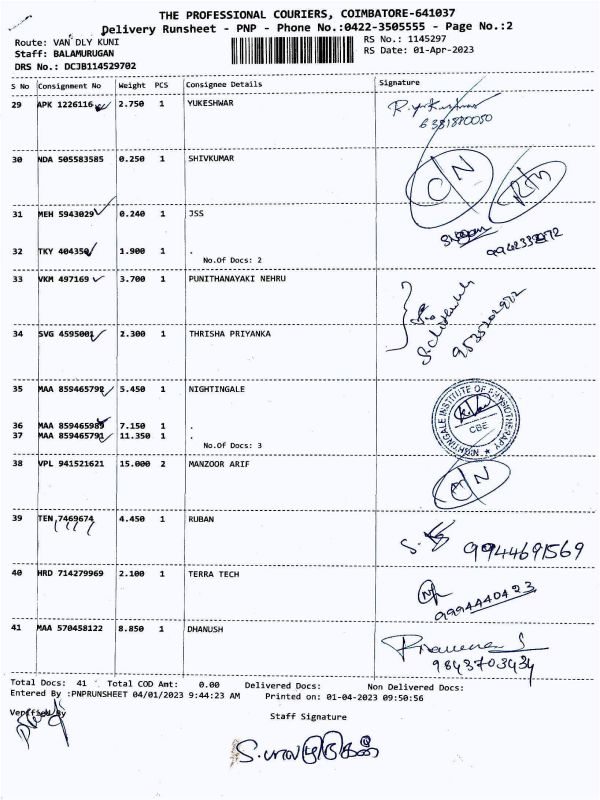 THE PROFESSIONAL COURIERS, COIMBATORE-641037
Delivery Runsheet - PNP - Phone No.:0422-3505555 - Page No.:2
Route: VAN DLY KUNI
RS No.: 1145297
Staff: BALAMURUGAN
RS Date: 01-Apr-2023
DRS No.: DCJB114529702
S No Consignment No Weight PCS Consignee Details Signature
29 APK 1226116 2.750 1 YUKESHWAR
6381870050
30 NDA 505583585 0.250 1 SHIVKUMAR
CN
31 MEH 5943029 0.240 1 JSS
32 TKY 404350 1.900 1 .
No.Of Docs: 2
33 VKM 497169 3.700 1 PUNITHANAYAKI NEHRU
34 SVG 4595001 2.300 1 THRISHA PRIYANKA
35 MAA 859465792 5.450 1 NIGHTINGALE
36 MAA 859465989 7.150 1 .
37 MAA 859465791 11.350 1 .
No.Of Docs: 3
NIGHTINGALE INSTITUTE OF PHYSIOTHERAPY
CBE
38 VPL 941521621 15.000 2 MANZOOR ARIF
39 TEN 7469674 4.450 1 RUBAN
9944691569
40 HRD 714279969 2.100 1 TERRA TECH
9994440423
41 MAA 570458122 8.850 1 DHANUSH
9843703434
Total Docs: 41 Total COD Amt: 0.00 Delivered Docs: Non Delivered Docs:
Entered By :PNPRUNSHEET 04/01/2023 9:44:23 AM Printed on: 01-04-2023 09:50:56
Verified By
Staff Signature
S. பாலமுருகன்